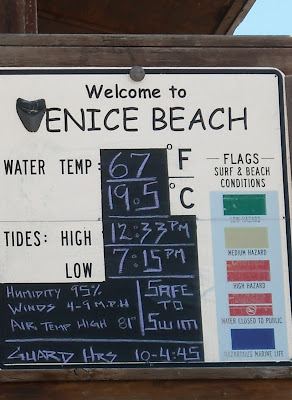 Welcome to
VENICE BEACH
WATER TEMP: 67 °F
19.5 °C
TIDES: HIGH 12:33PM
LOW 7:15PM
HUMIDITY 95%
WINDS 4-9 M.P.H
AIR TEMP HIGH 81°
SAFE
TO
SWIM
GUARD HRS 10-4:45
FLAGS
SURF & BEACH
CONDITIONS
LOW HAZARD
MEDIUM HAZARD
HIGH HAZARD
WATER CLOSED TO PUBLIC
HAZARDOUS MARINE LIFE